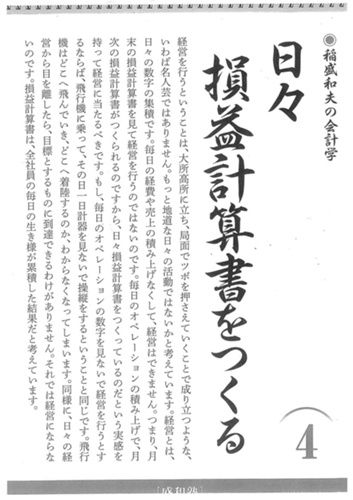 ◉稲盛和夫の会計学
日々
損益計算書をつくる
4
経営を行うということは、大所高所に立ち、局面でツボを押さえていくことで成り立つような、
いわば名人芸ではありません。もっと地道な日々の活動ではないかと考えています。経営とは、
日々の数字の集積です。毎日の経費や売上の積み上げなくして、経営はできません。つまり、月
末の損益計算書を見て経営を行うのではないのです。毎日のオペレーションの積み上げで、月
次の損益計算書がつくられるのですから、日々損益計算書をつくっているのだという実感を
持って経営に当たるべきです。もし、毎日のオペレーションの数字を見ないで経営を行うとす
るならば、飛行機に乗って、その日一日計器を見ないで操縦をするということと同じです。飛行
機はどこへ飛んでいき、どこへ着陸するのか、わからなくなってしまいます。同様に、日々の経
営から目を離したら、目標とするものに到達できるわけがありません。それでは経営にならな
いのです。損益計算書は、全社員の毎日の生き様が累積した結果だと考えています。
[盛和塾]